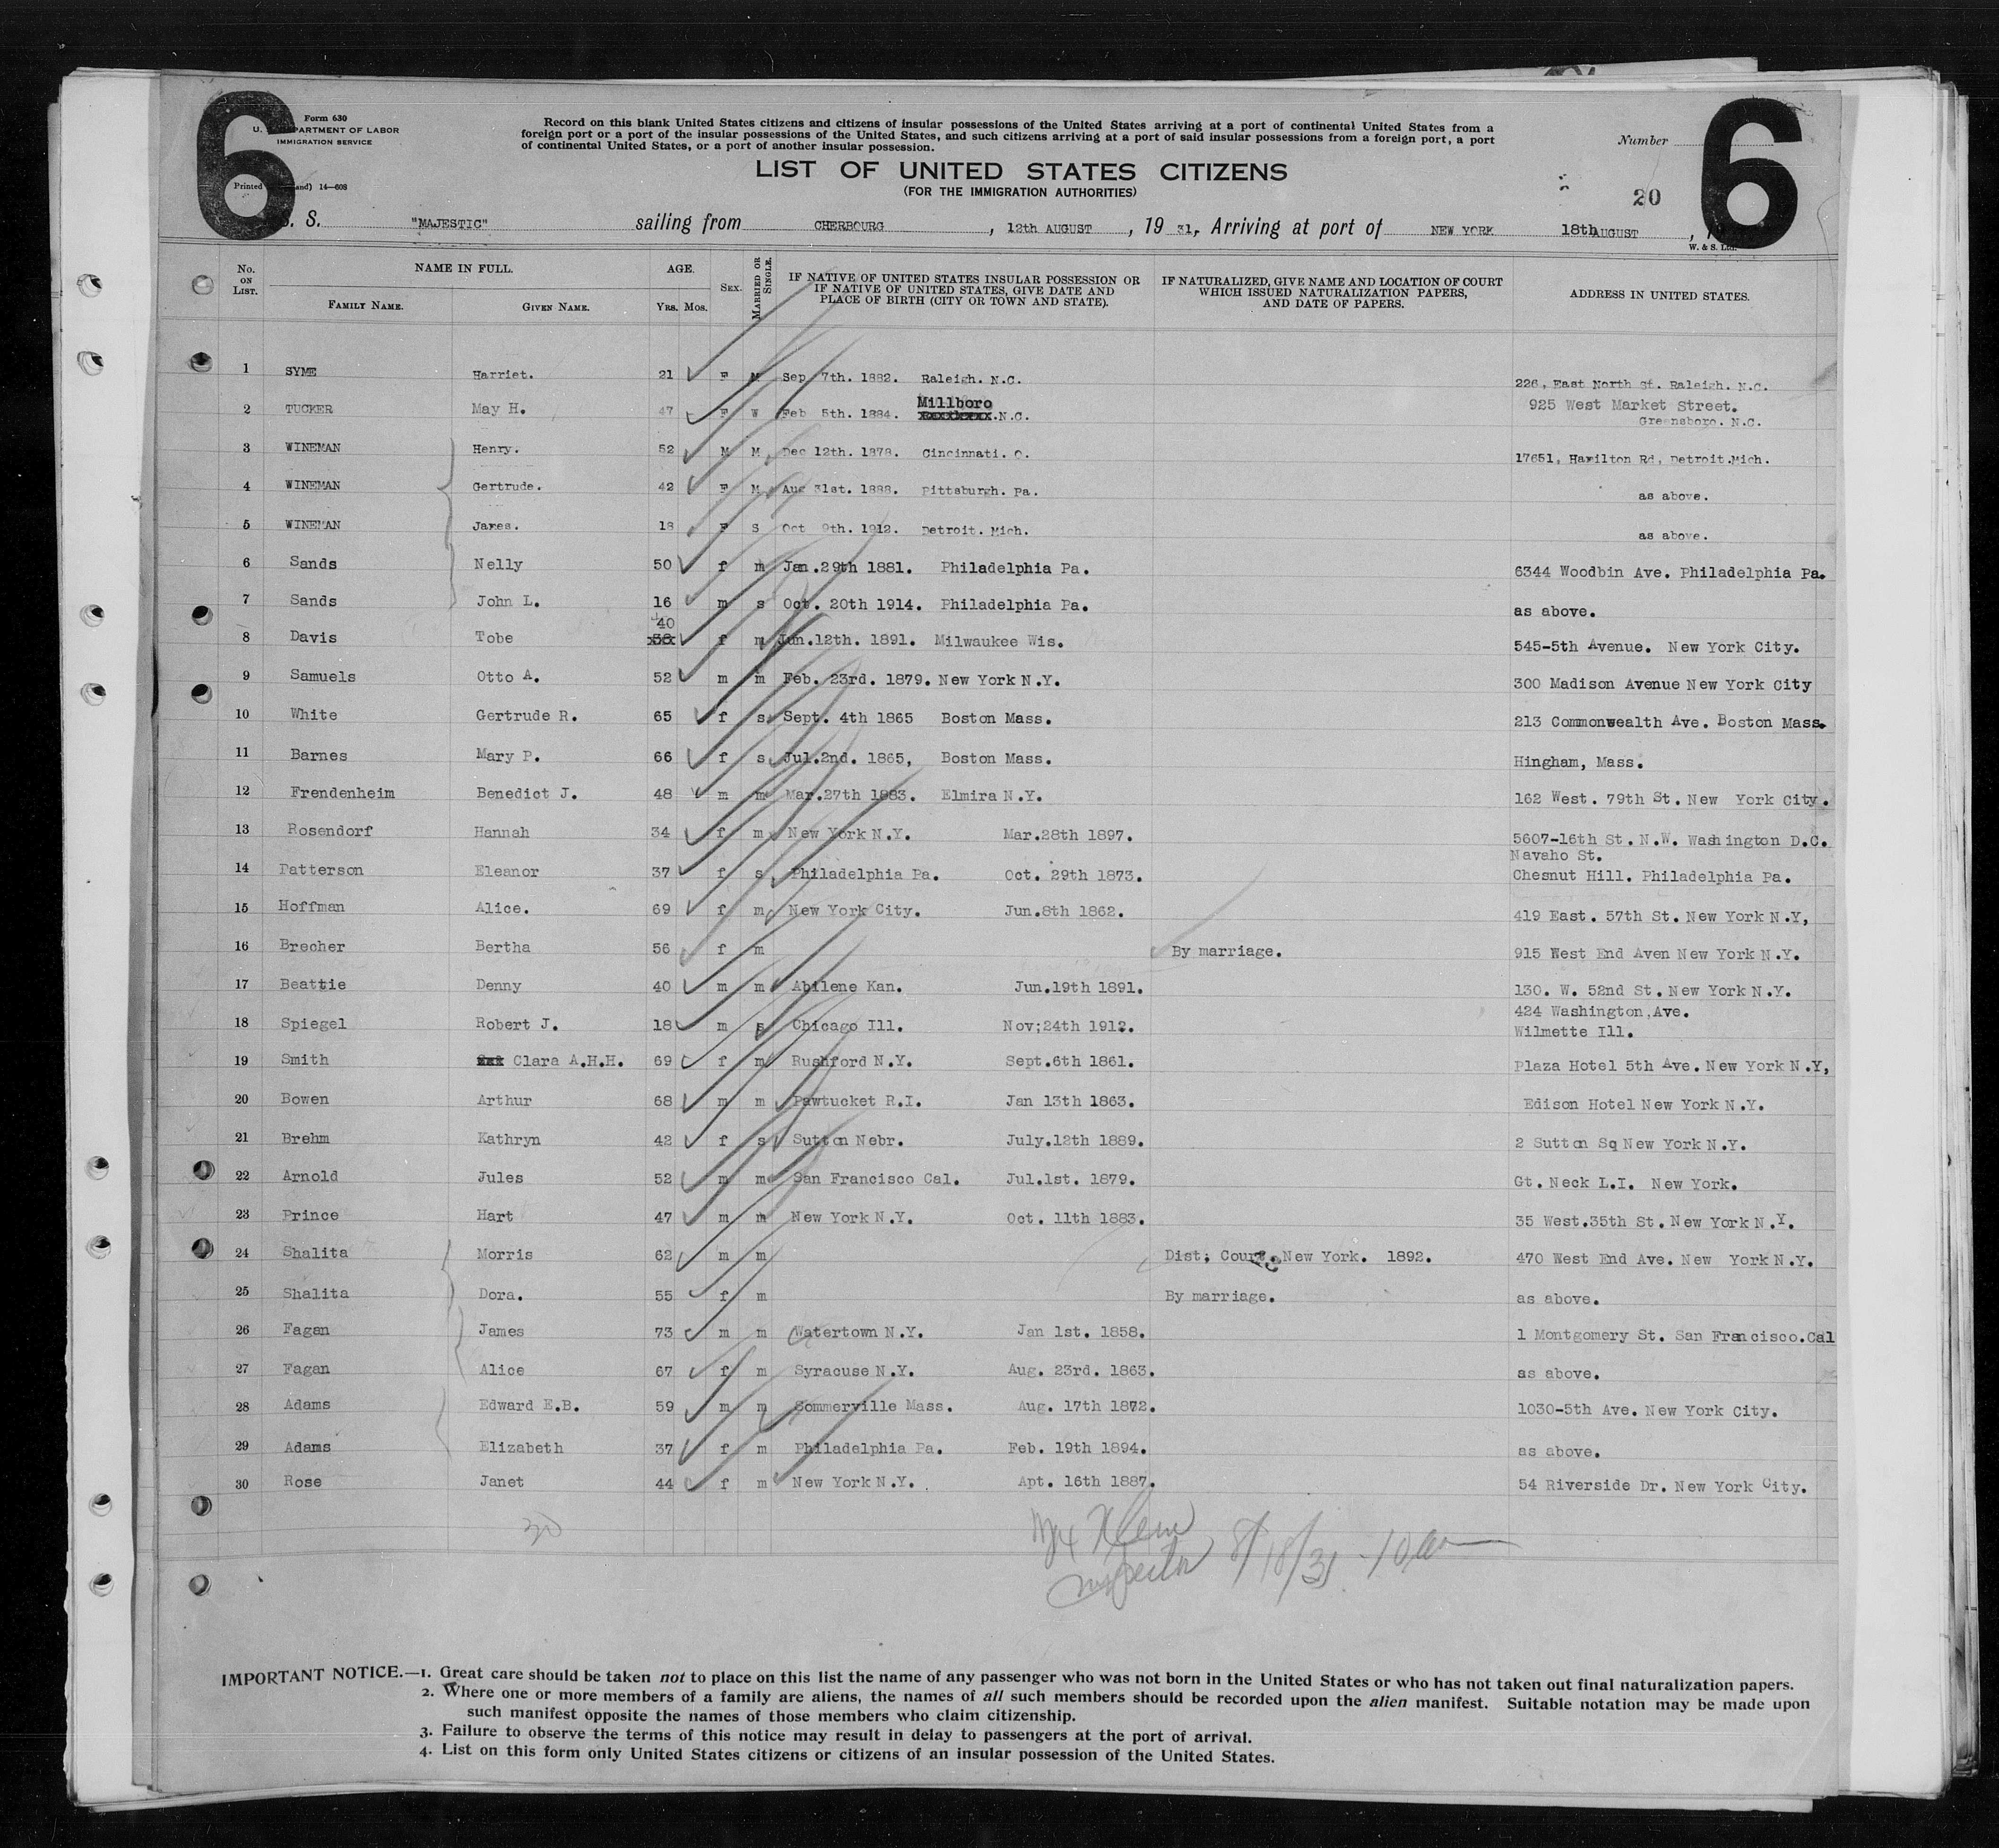 6
6
Form 630
U. DEPARTMENT OF LABOR
IMMIGRATION SERVICE
Printed and) 14—608
Record on this blank United States citizens and citizens of insular possessions of the United States arriving at a port of continental United States from a
foreign port or a port of the insular possessions of the United States, and such citizens arriving at a port of said insular possessions from a foreign port, a port
of continental United States, or a port of another insular possession.
Number
LIST OF UNITED STATES CITIZENS
(FOR THE IMMIGRATION AUTHORITIES)
20
S. "MAJESTIC" sailing from CHERBOURG, 12th AUGUST, 19 31, Arriving at port of NEW YORK 18th AUGUST, 1
W. & S. Ltd.
No. ON LIST. NAME IN FULL. FAMILY NAME. GIVEN NAME. AGE. YRS. MOS. SEX. MARRIED OR SINGLE. IF NATIVE OF UNITED STATES INSULAR POSSESSION OR IF NATIVE OF UNITED STATES, GIVE DATE AND PLACE OF BIRTH (CITY OR TOWN AND STATE). IF NATURALIZED, GIVE NAME AND LOCATION OF COURT WHICH ISSUED NATURALIZATION PAPERS, AND DATE OF PAPERS. ADDRESS IN UNITED STATES.
1 SYME Harriet. 21 F M Sep 7th. 1882. Raleigh. N.C. 226, East North St. Raleigh. N.C.
2 TUCKER May H. 47 F W Feb 5th. 1884. Millboro .N.C. 925 West Market Street.
Greensboro. N.C.
3 WINEMAN Henry. 52 M M Dec 12th. 1878. Cincinnati. O. 17651, Hamilton Rd, Detroit.Mich.
4 WINEMAN Gertrude. 42 F M Aug 31st. 1888. Pittsburgh. Pa. as above.
5 WINEMAN James. 18 F S Oct 9th. 1912. Detroit. Mich. as above.
6 Sands Nelly 50 f m Jan.29th 1881. Philadelphia Pa. 6344 Woodbin Ave. Philadelphia Pa.
7 Sands John L. 16 m s Oct. 20th 1914. Philadelphia Pa. as above.
40
8 Davis Tobe f m Jun.12th. 1891. Milwaukee Wis. 545-5th Avenue. New York City.
9 Samuels Otto A. 52 m m Feb. 23rd. 1879. New York N.Y. 300 Madison Avenue New York City
10 White Gertrude R. 65 f s Sept. 4th 1865 Boston Mass. 213 Commonwealth Ave. Boston Mass.
11 Barnes Mary P. 66 f s Jul.2nd. 1865, Boston Mass. Hingham, Mass.
12 Frendenheim Benedict J. 48 m m Mar.27th 1883. Elmira N.Y. 162 West. 79th St. New York City.
13 Rosendorf Hannah 34 f m New York N.Y. Mar.28th 1897. 5607-16th St. N.W. Washington D.C.
Navaho St.
14 Patterson Eleanor 37 f s Philadelphia Pa. Oct. 29th 1873. Chesnut Hill. Philadelphia Pa.
15 Hoffman Alice. 69 f m New York City. Jun.8th 1862. 419 East. 57th St. New York N.Y,
16 Brecher Bertha 56 f m By marriage. 915 West End Aven New York N.Y.
17 Beattie Denny 40 m m Abilene Kan. Jun.19th 1891. 130. W. 52nd St. New York N.Y.
424 Washington,Ave.
18 Spiegel Robert J. 18 m s Chicago Ill. Nov;24th 1912. Wilmette Ill.
19 Smith Clara A.H.H. 69 f m Rushford N.Y. Sept.6th 1861. Plaza Hotel 5th Ave. New York N.Y,
20 Bowen Arthur 68 m m Pawtucket R.I. Jan 13th 1863. Edison Hotel New York N.Y.
21 Brehm Kathryn 42 f s Sutton Nebr. July.12th 1889. 2 Sutton Sq New York N.Y.
22 Arnold Jules 52 m m San Francisco Cal. Jul.1st. 1879. Gt. Neck L.I. New York.
23 Prince Hart 47 m m New York N.Y. Oct. 11th 1883. 35 West.35th St. New York N.Y.
24 Shalita Morris 62 m m Dist; Court. New York. 1892. 470 West End Ave. New York N.Y.
25 Shalita Dora. 55 f m By marriage. as above.
26 Fagan James 73 m m Watertown N.Y. Jan 1st. 1858. 1 Montgomery St. San Francisco.Cal
27 Fagan Alice 67 f m Syracuse N.Y. Aug. 23rd. 1863. as above.
28 Adams Edward E.B. 59 m m Sommerville Mass. Aug. 17th 1872. 1030-5th Ave. New York City.
29 Adams Elizabeth 37 f m Philadelphia Pa. Feb. 19th 1894. as above.
30 Rose Janet 44 f m New York N.Y. Apt. 16th 1887. 54 Riverside Dr. New York City.
30
8/18/31
Inspector
IMPORTANT NOTICE.—1. Great care should be taken not to place on this list the name of any passenger who was not born in the United States or who has not taken out final naturalization papers.
2. Where one or more members of a family are aliens, the names of all such members should be recorded upon the alien manifest. Suitable notation may be made upon
such manifest opposite the names of those members who claim citizenship.
3. Failure to observe the terms of this notice may result in delay to passengers at the port of arrival.
4. List on this form only United States citizens or citizens of an insular possession of the United States.